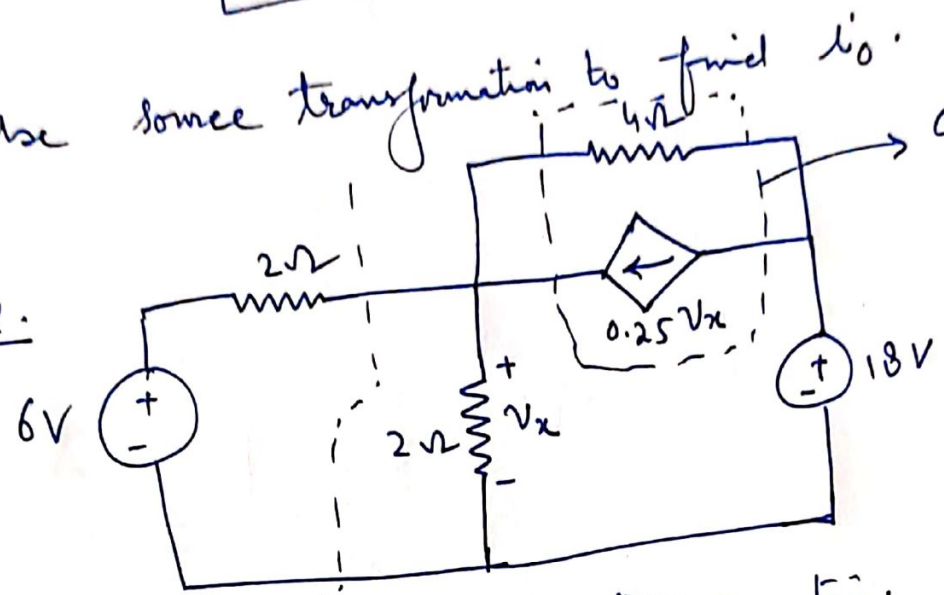 source transformation to find i₀.
4Ω
2Ω
0.25 Vx
+
6V
+
-
2Ω
Vx
-
+
-
18V